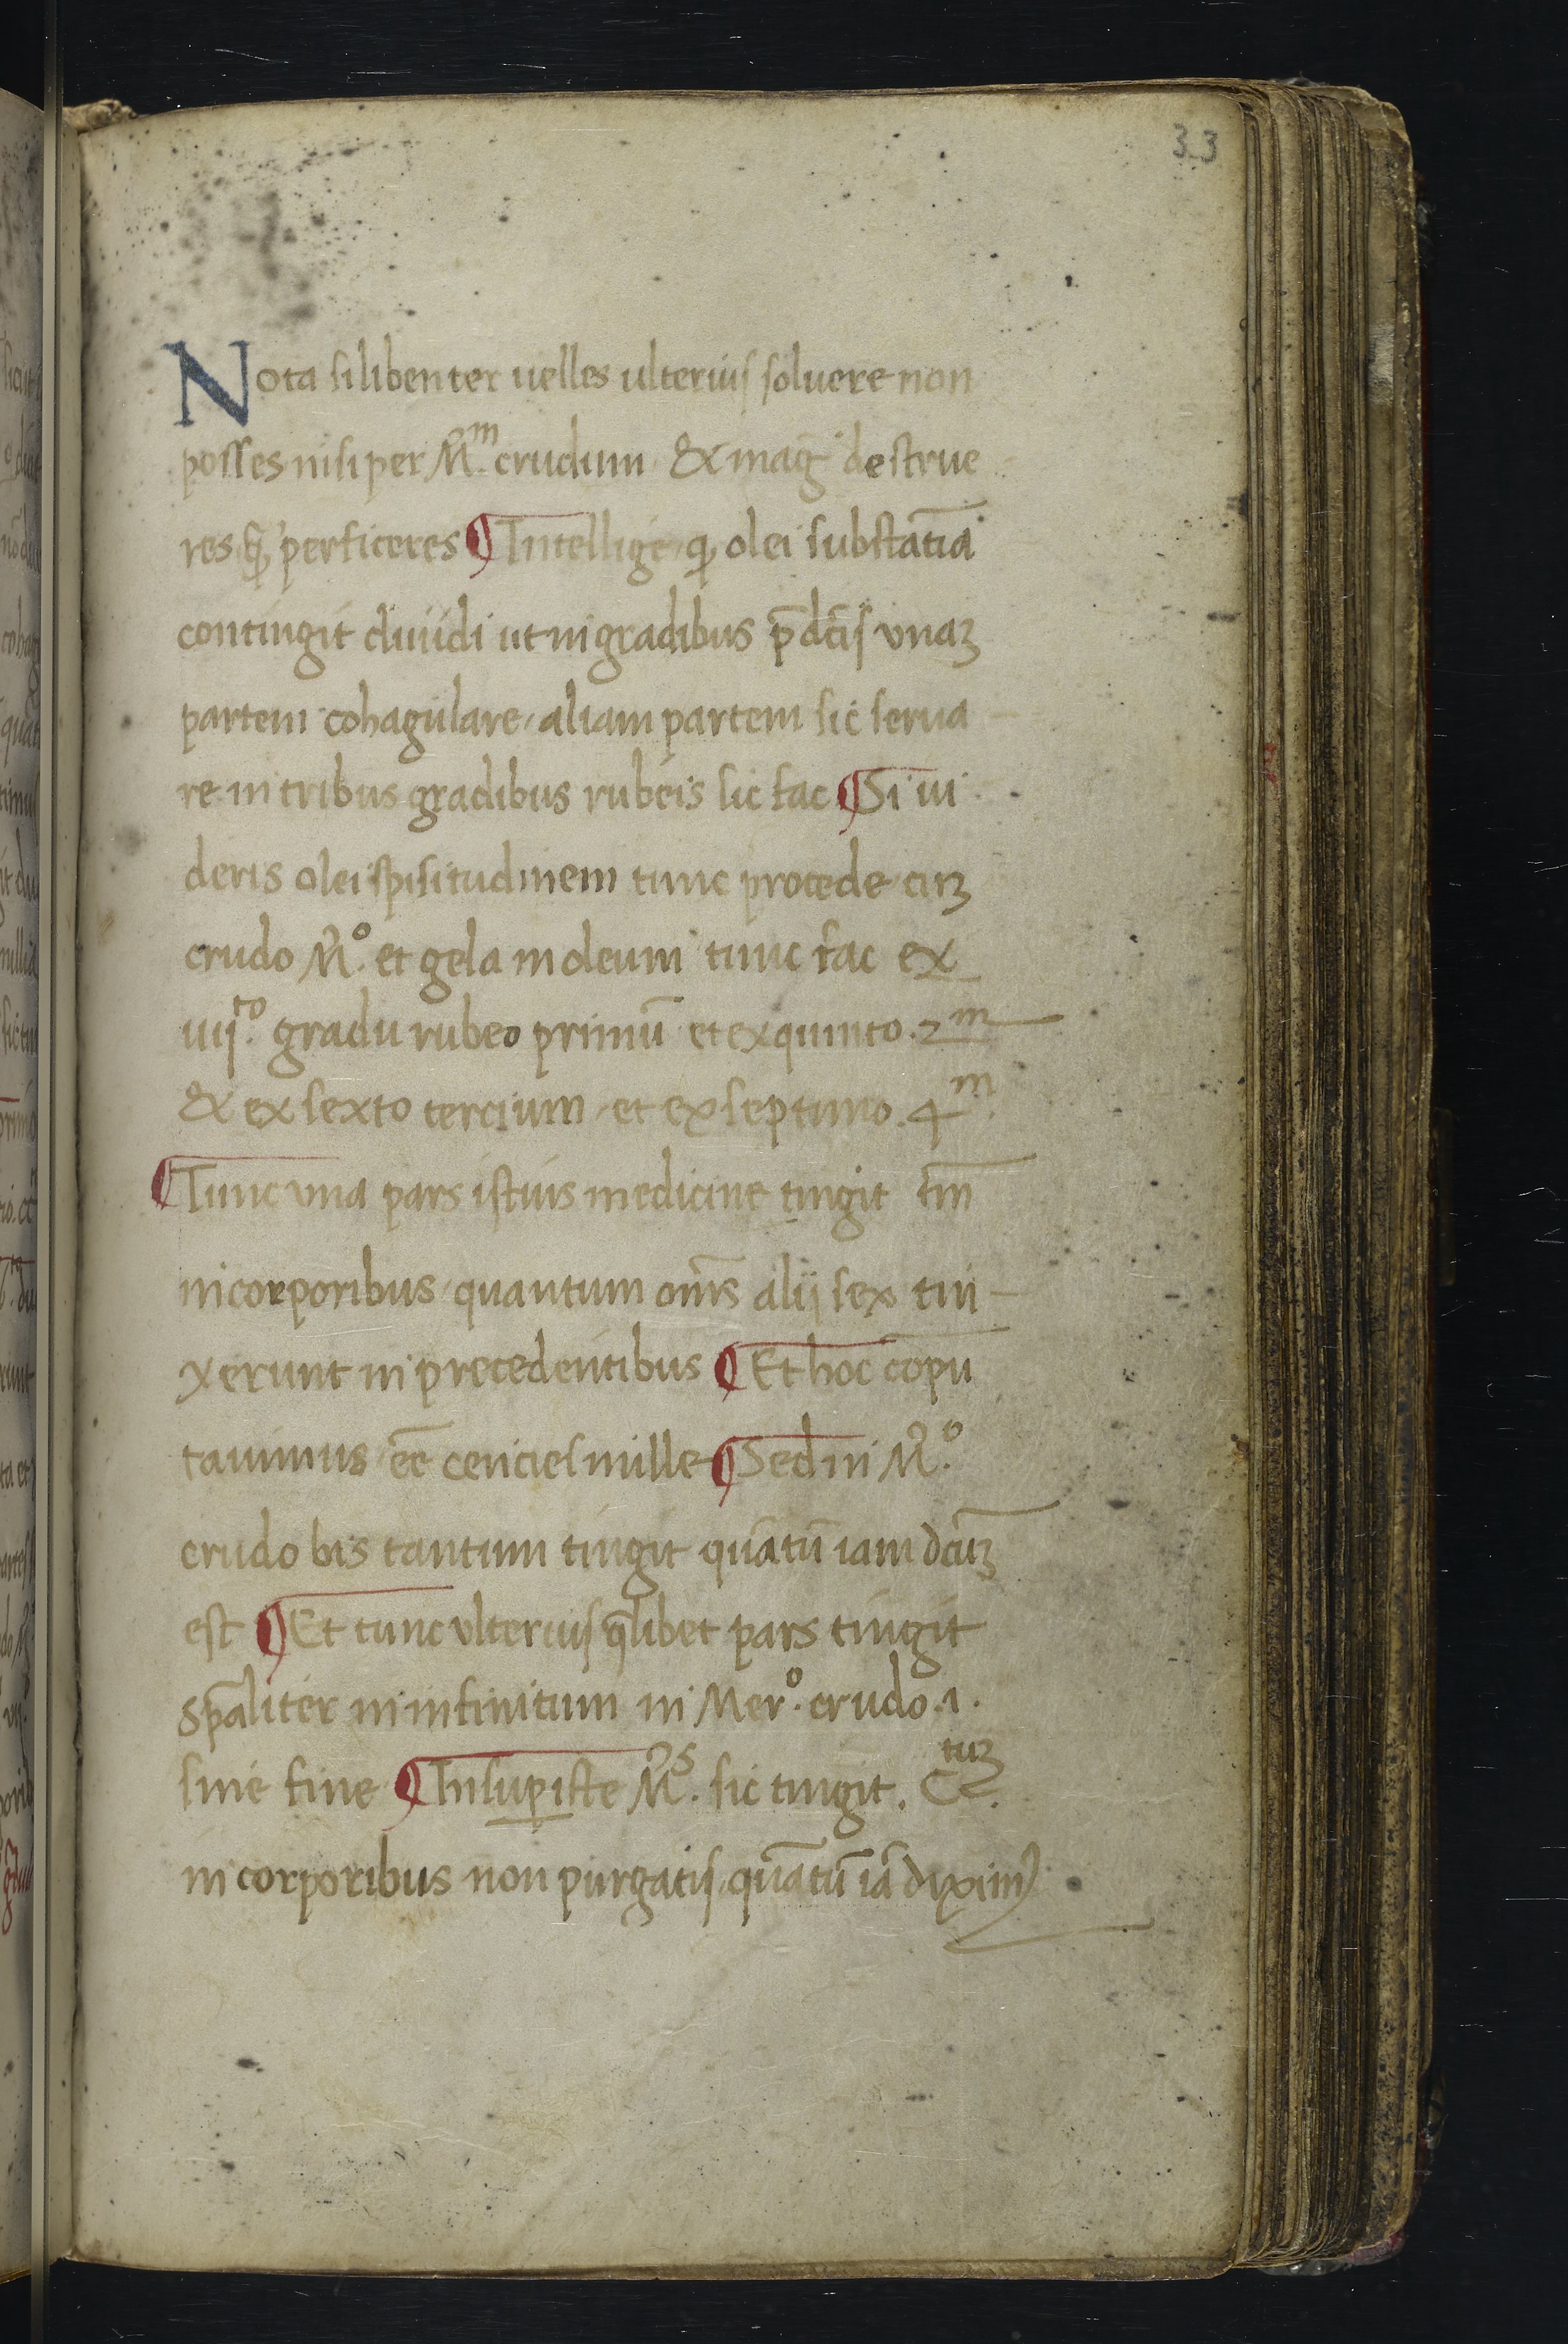 33
Nota si libenter uelles ulterius soluere non
posses nisi per M̃.ᵐ crudum & mag̃ destrue
res ꝙ̃ perficeres ¶ Intellige ꝙ olei substãtiã
contingit diuidi ut in gradibus p̃dc̃is vnaꝫ
partem cohagulare, aliam partem sic serua-
re in tribus gradibus rubeis sic fac ¶ Si ui
deris olei spisitudinem tunc procede cuꝫ
crudo M̃.º et gela in oleum tunc fac ex
iiij.ᵗᵒ gradu rubeo primũ et ex quinto. 2ᵐ
& ex sexto tercium et ex septimo. 4ᵐ.
¶ Tunc vna pars istius medicine tingit tm̃
in corporibus quantum om̃s alij sex tin-
xerunt in precedentibus ¶ Et hoc cõpu
tauimus eẽ cencies mille ¶ Sed in M̃.º
crudo bis tantum tingit quãtũ iam dcũꝫ
est ¶ Et tunc ulterius q̃libet pars tingit
sp̃aliter in infinitum in Mer.º crudo .i.
sine fine ¶ Insuꝑ iste M̃.ˢ sic tingit. C.ᵗᵘꝫ
in corporibus non purgatis, quãtũ iã diximꝰ